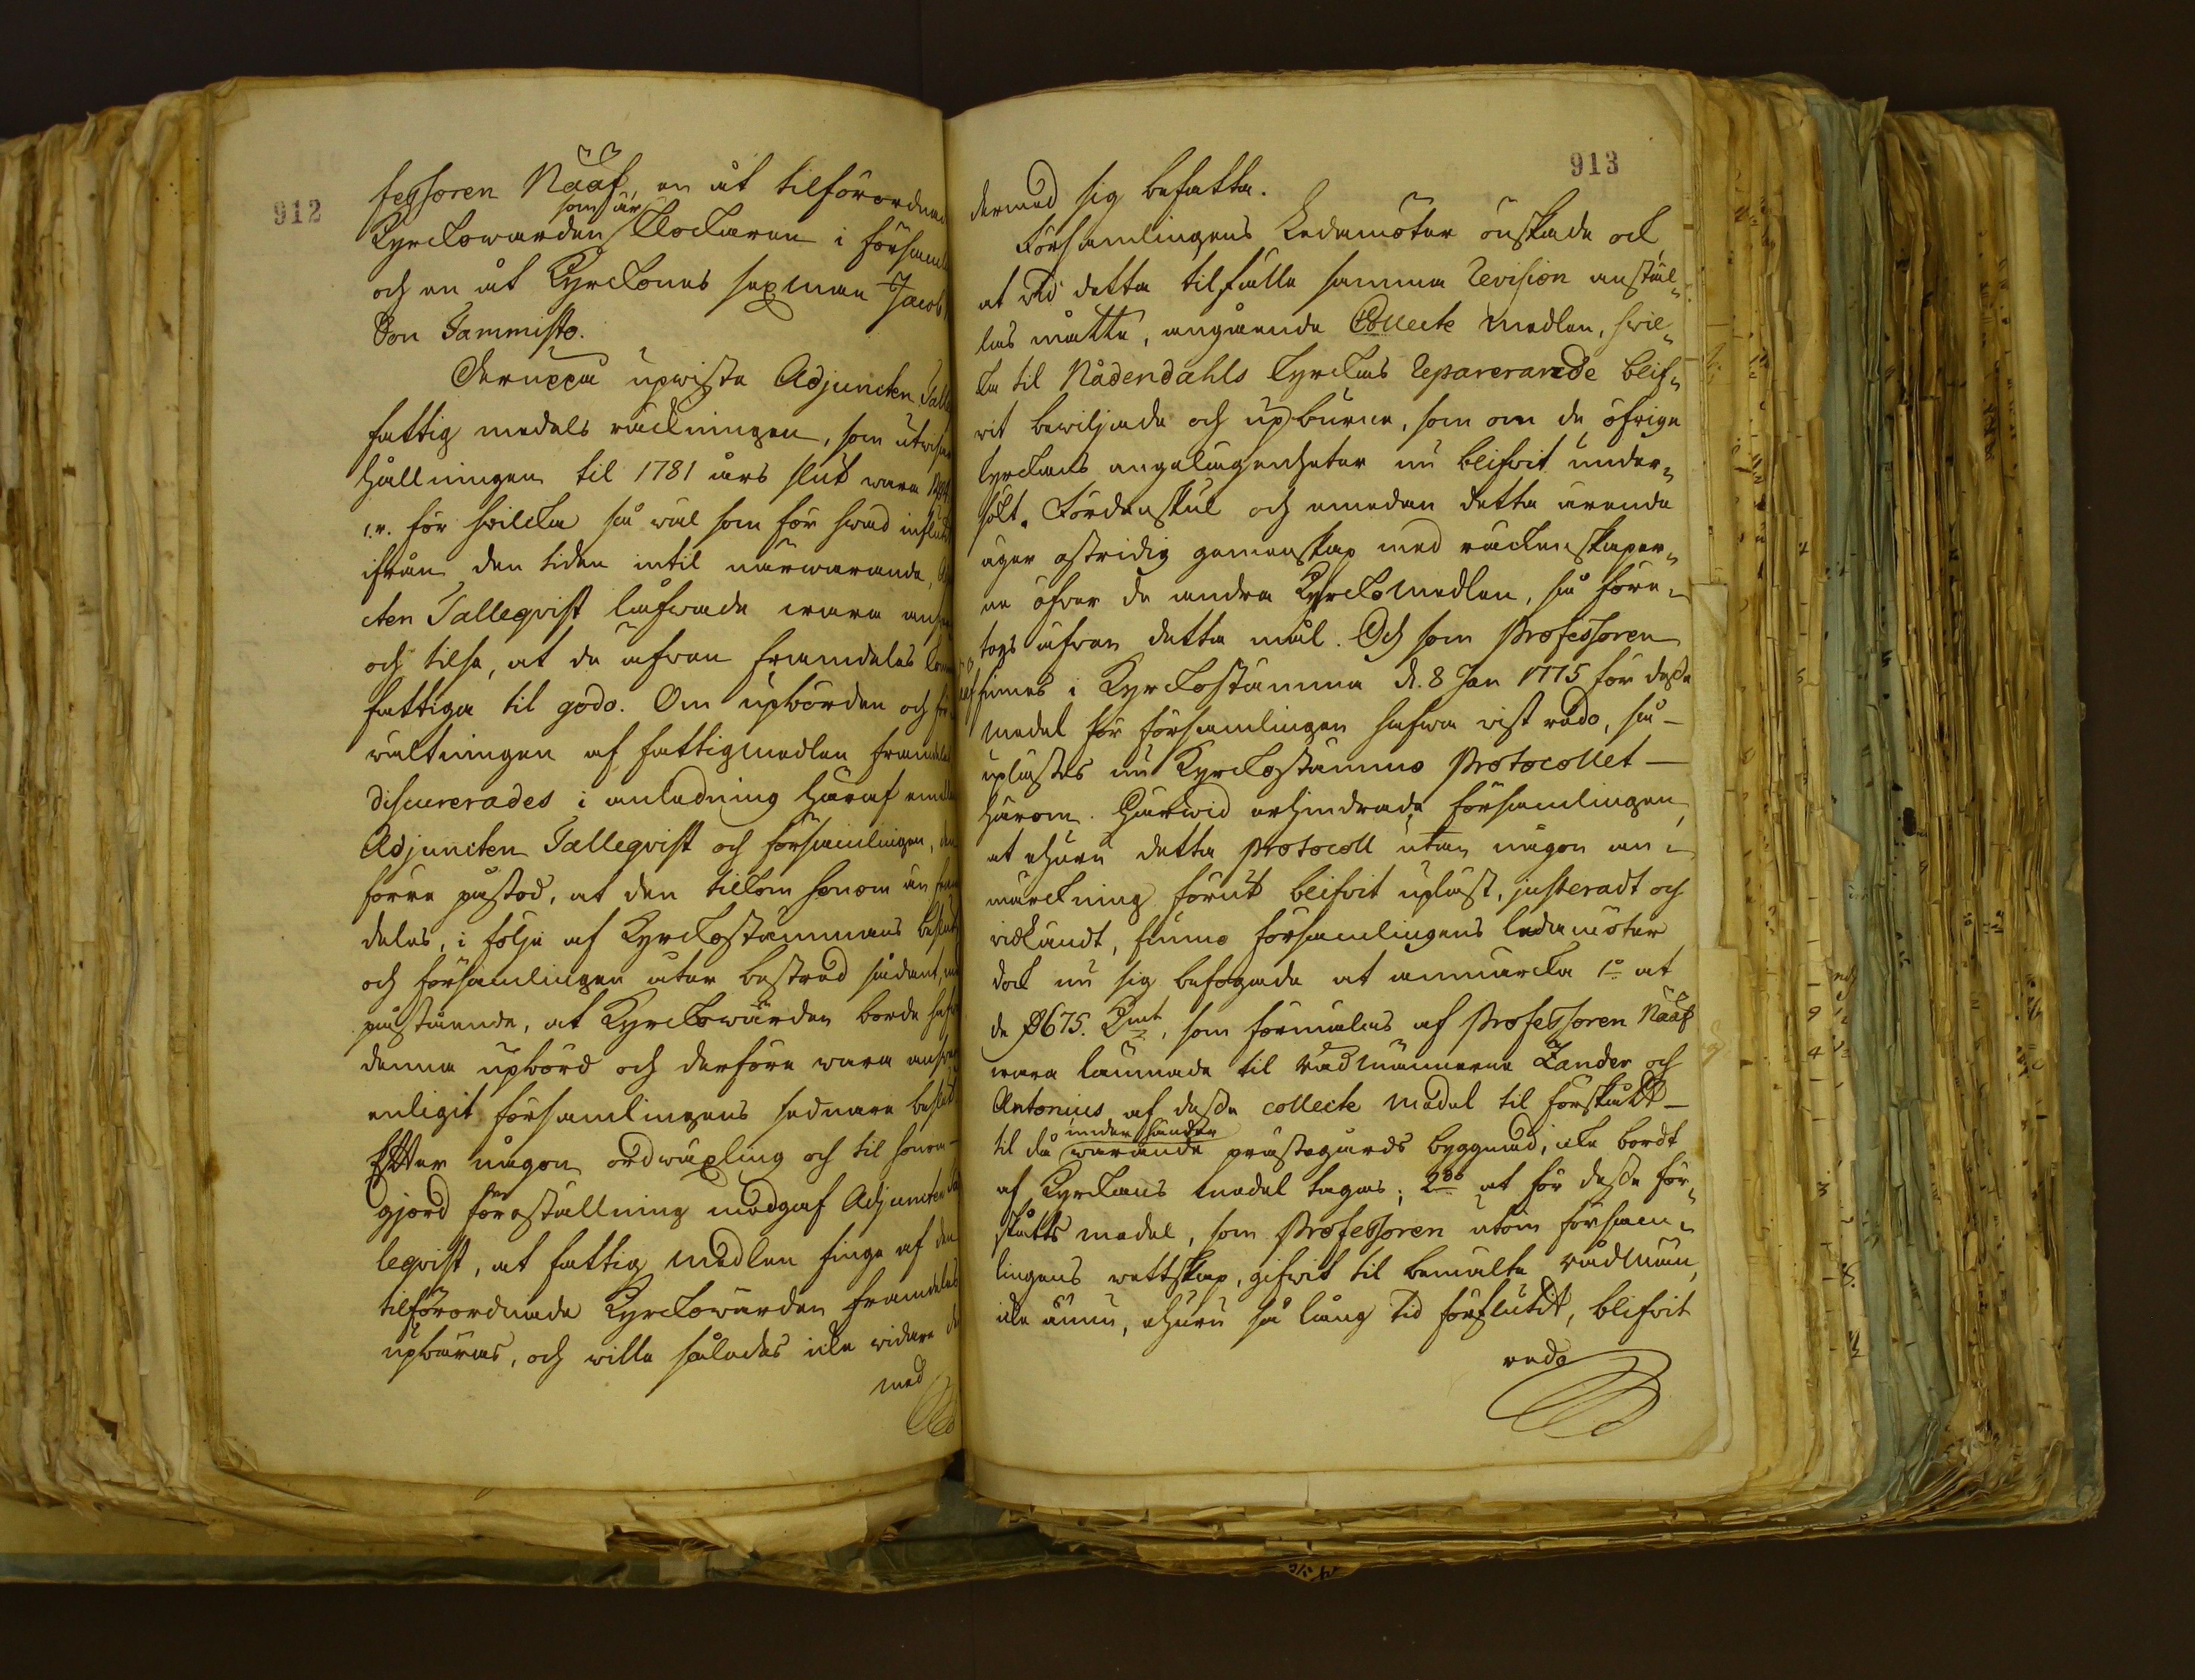 912
fessoren Nääf, en åt tilförordnad
som är
Kyrckowärden Klockaren i församl
och en åt Kyrckones sexman Jacob
Son Tammisto.
Deruppå upviste Adjuncten Talle
fattig medels räckningen, som utviser
hållningen til 1781 års slut wara
r. för hvilcka så wäl som för hwad influtit
ifrån den tiden intil närwarande,
cten Tallegvist lofwade wara answ
och tilse, at de äfwen framdeles kom
fattiga til godo. Om upbörden och för
waltningen af fattigmedlen framdeles
discurerades i anledning häraf emellan
Adjuncten Tallegvist och församlingen, den
förre påstod, at den tilkom honom än fram
deles, i följe af Kyrckostämmans beslut
och församlingen åter bestred sådant,
påstående, at Kyrckowärden borde hafwa
denna upbörd och derföre wara answ
enligit församlingens sednare beslut
Efter någon ordwäxling och til honom
gjord föreställning medgaf Adjuncten Tal
legvist, at fattig medlen finge af den
tilförordnade Kyrckowärden framdeles
upbäras, och wille således icke widare
med
913
dermed sig befatta.
Församlingens Ledamöter önskade ock
at wid detta tilfälle samma Revision anstäl¬
las måtte, angående Collecte medlen, hvil¬
ka til Nådendahls Kyrckas Reparerande blif¬
vit bewiljade och upburne, som om de öfrige
Kyrckans angelägenheter nu blifvit under¬
sökt. Fördenskul och emedan detta ärende
äger ostridig gemenskap med räckenskaper¬
ne öfver de andra Kyrckomedlen, så före¬
togs äfven detta mål. Och som Professoren
finnes i Kyrckostämma d. 8 Jan 1775 för desse
medel för församlingen hafwa vist redo, så
uplästes nu Kyrckostämmo Protocollet
härom. Härwid erhindrade församlingen,
at ehuru detta Protocoll utan någon an¬
märckning förut blifvit upläst, justeradt och
vidkändt, funno församlingens ledamöter
dock nu sig befogade at anmärcka 1o at
de 675. Kmt, som förmäles af Professoren Nääf
wara lämnade til Rådmännerne Zander och
Antonius af desse collecte medel til förskått
under händer
til då warande prästegårds byggnad, icke bordt
af Kyrckans medel tagas; 2do at för desse för¬
skåtts medel, som Professoren utom försam¬
lingens wettskap, gifwit til bemälte Rådmän,
icke ännu, ehuru så lång tid förflutit, blifvit
redo